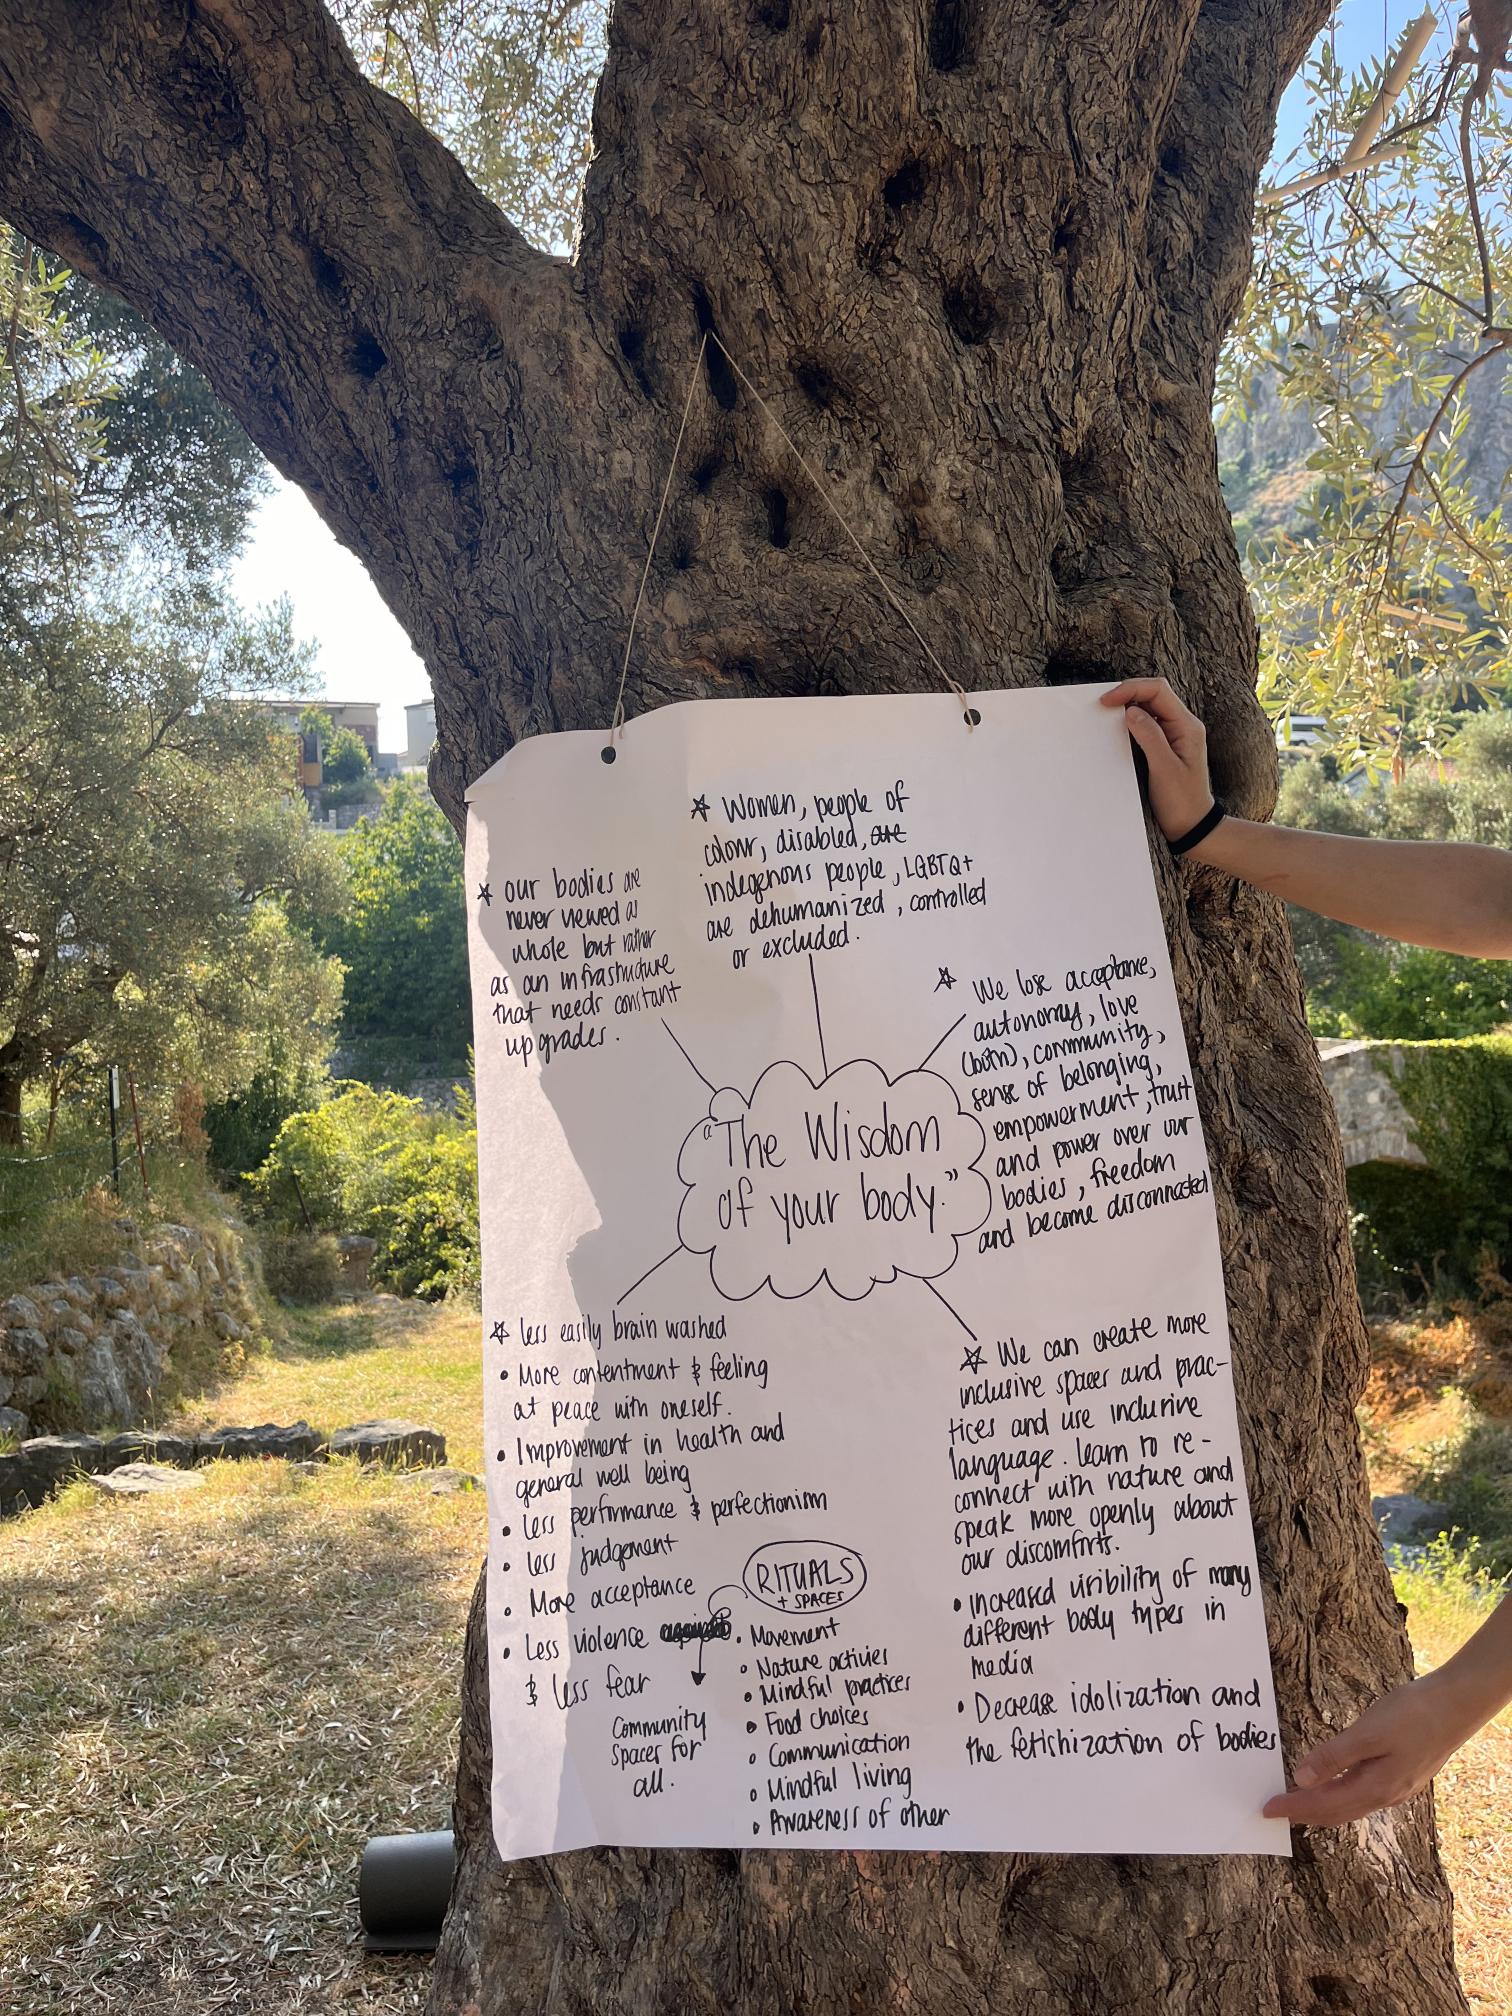 ☆ Women, people of
colour, disabled, are
indegenous people, LGBTQ+
are dehumanized, controlled
or excluded.
☆ our bodies are
never viewed as
whole but rather
as an infrastructure
that needs constant
up grades.
☆ We lose acceptance,
autonomy, love
(both), community,
sense of belonging,
empowerment, trust
and power over our
bodies, freedom
and become disconnected
"The Wisdom
of your body."
☆ less easily brain washed
• More contentment & feeling
at peace with oneself.
• Improvement in health and
general well being
• less performance & perfectionism
• less judgement
• More acceptance
• Less violence
& less fear
RITUALS
+ SPACES
Community
Spaces for
all.
• Movement
• Nature activies
• Mindful practices
• Food choices
• Communication
• Mindful living
• Awareness of other
☆ We can create more
inclusive spaces and prac-
tices and use inclusive
language. learn to re-
connect with nature and
speak more openly about
our discomforts.
• Increased visibility of many
different body types in
media
• Decrease idolization and
the fetishization of bodies